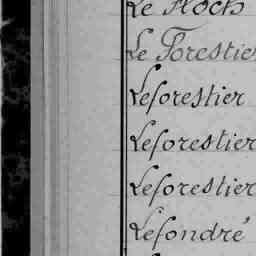 Le Floch
Le Forestier
Leforestier
Leforestier
Leforestier
Lefondré